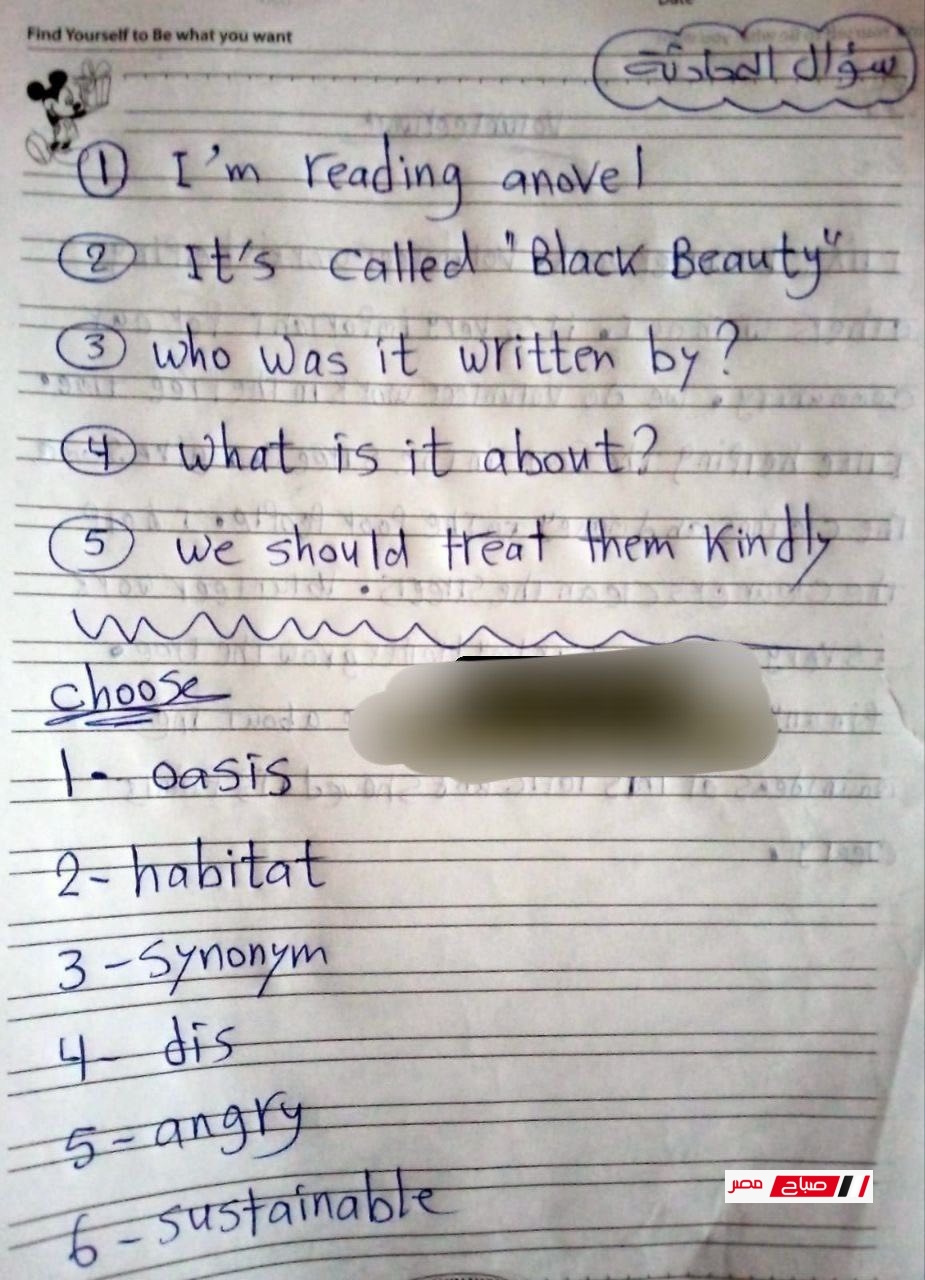 Find Yourself to Be what you want
سؤال المحادثة
① I'm reading anovel
② It's called "Black Beauty"
③ who was it written by?
④ what is it about?
⑤ we should treat them kindly
choose
1- oasis
2- habitat
3- synonym
4- dis
5- angry
6- sustainable
صباح مصر